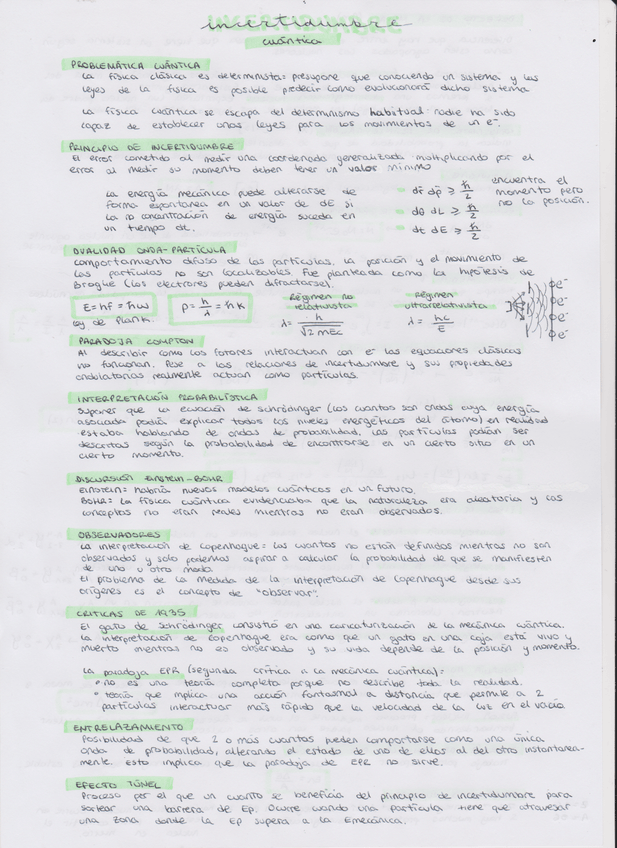 incertidumbre
cuántica
PROBLEMÁTICA CUÁNTICA
La física clásica es determinista: presupone que conociendo un sistema y las
leyes de la física es posible predecir como evolucionará dicho sistema
La física cuántica se escapa del determinismo habitual: nadie ha sido
capaz de establecer unas leyes para los movimientos de un e⁻.
PRINCIPIO DE INCERTIDUMBRE
El error cometido al medir una coordenada generalizada multiplicando por el
error al medir su momento deben tener un valor mínimo
La energía mecánica puede alterarse de
forma espontanea en un valor de dE si
la concentración de energía suceda en
un tiempo dt.
dr dp ≥ ħ/2
dθ dL ≥ ħ/2
dt dE ≥ ħ/2
encuentra el
momento pero
no la posición.
DUALIDAD ONDA-PARTÍCULA
comportamiento difuso de las partículas, la posición y el movimiento de
las partículas no son localizables. Fue planteada como la hipótesis de
Broglie (los electrones pueden difractarse).
E = hf = ħω
Ley de Plank.
p = h/λ = ħk
Régimen no
relativista
λ = h/√2mEc
Régimen
ultrarelativista
λ = hc/E
e⁻
e⁻
e⁻
e⁻
PARADOJA COMPTON
Al describir como los fotones interactuan con e⁻ las equaciones clásicas
no funcionan. Pese a las relaciones de incertidumbre y sus propiedades
ondulatorias realmente actuan como partículas.
INTERPRETACIÓN PROBABILÍSTICA
Suponer que la ecuación de schrödinger (los cuantos son ondas cuya energía
asociada podía explicar todos los niveles energéticos del átomo) en realidad
estaba hablando de ondas de probabilidad. Las partículas podían ser
descritas según la probabilidad de encontrarse en un cierto sitio en un
cierto momento.
DISCURSIÓN EINSTEIN-BOHR
EINSTEIN: habría nuevos modelos cuánticos en un futuro.
BOHR: La física cuántica evidenciaba que la naturaleza era aleatoria y los
conceptos no eran reales mientras no eran observados.
OBSERVADORES
La interpretación de Copenhague: Los cuantos no están definidos mientras no son
observados y solo podemos aspirar a calcular la probabilidad de que se manifiesten
de uno u otro modo.
El problema de la medida de la interpretación de Copenhague desde sus
orígenes es el concepto de "observar".
CRITICAS DE 1935
El gato de Schrödinger consistió en una caricaturización de la mecánica cuántica.
La interpretación de Copenhague era como que un gato en una caja está vivo y
muerto mientras no es observado y su vida depende de la posición y momento.
La paradoja EPR (segunda crítica a la mecánica cuántica):
• no es una teoría completa porque no describe toda la realidad.
• teoría que implica una acción fantasmal a distancia que permite a 2
partículas interactuar más rápido que la velocidad de la luz en el vacío.
ENTRELAZAMIENTO
Posibilidad de que 2 o más cuantos pueden comportarse como una única
onda de probabilidad, alterando el estado de uno de ellos al del otro instantanea-
mente. esto implica que la paradoja de EPR no sirve.
EFECTO TÚNEL
Proceso por el que un cuanto se beneficia del principio de incertidumbre para
sortear una barrera de Ep. Ocurre cuando una partícula tiene que atravesar
una zona donde la Ep supera a la Emecánica.